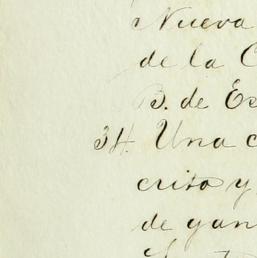 Nueva
de la C
B. de Es
34. Una c
crito y
de gan